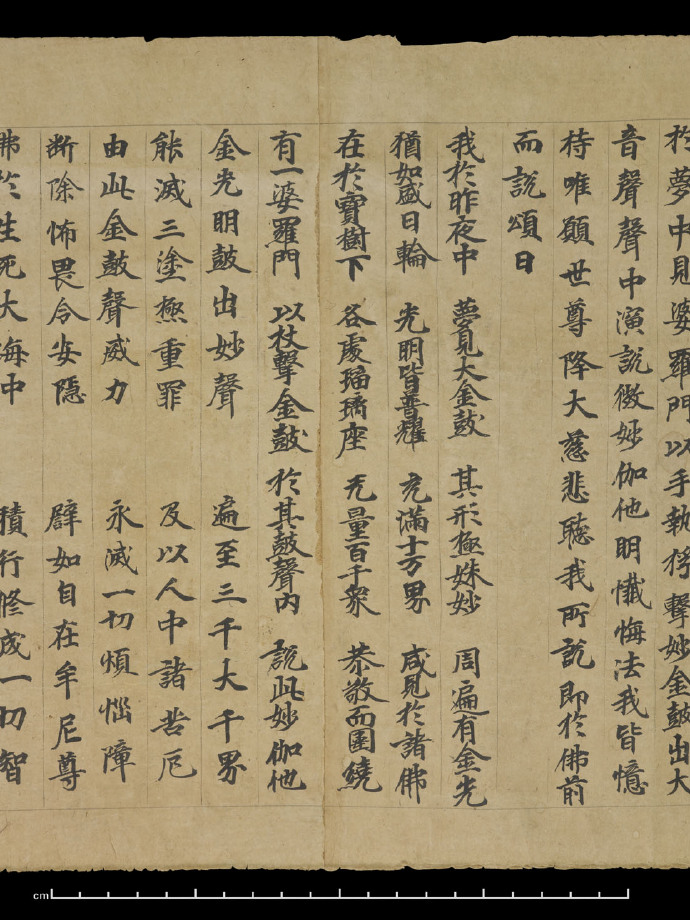 於夢中見婆羅門以手執桴擊妙金鼓出大
音聲聲中演說微妙伽他明懺悔法我皆憶
持唯願世尊降大慈悲聽我所說即於佛前
而說頌曰
我於昨夜中 夢見大金鼓 其形極姝妙 周遍有金光
猶如盛日輪 光明皆普耀 充滿十方界 咸見於諸佛
在於寶樹下 各處瑠璃座 无量百千眾 恭敬而圍繞
有一婆羅門 以杖擊金鼓 於其鼓聲內 說此妙伽他
金光明鼓出妙聲 遍至三千大千界
能滅三塗極重罪 及以人中諸苦厄
由此金鼓聲威力 永滅一切煩惱障
断除怖畏令安隱 譬如自在牟尼尊
佛於生死大海中 積行修成一切智
cm